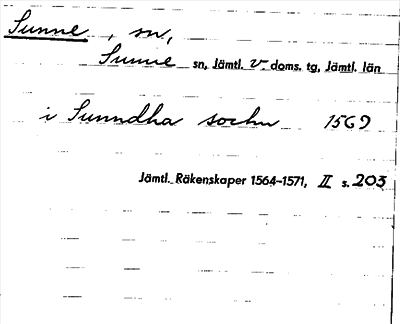 Sunne, sn,
Sunne sn, Jämtl. v. doms. tg, Jämtl. län
i Sunndha sochn 1569
Jämtl. Räkenskaper 1564-1571, II s. 203